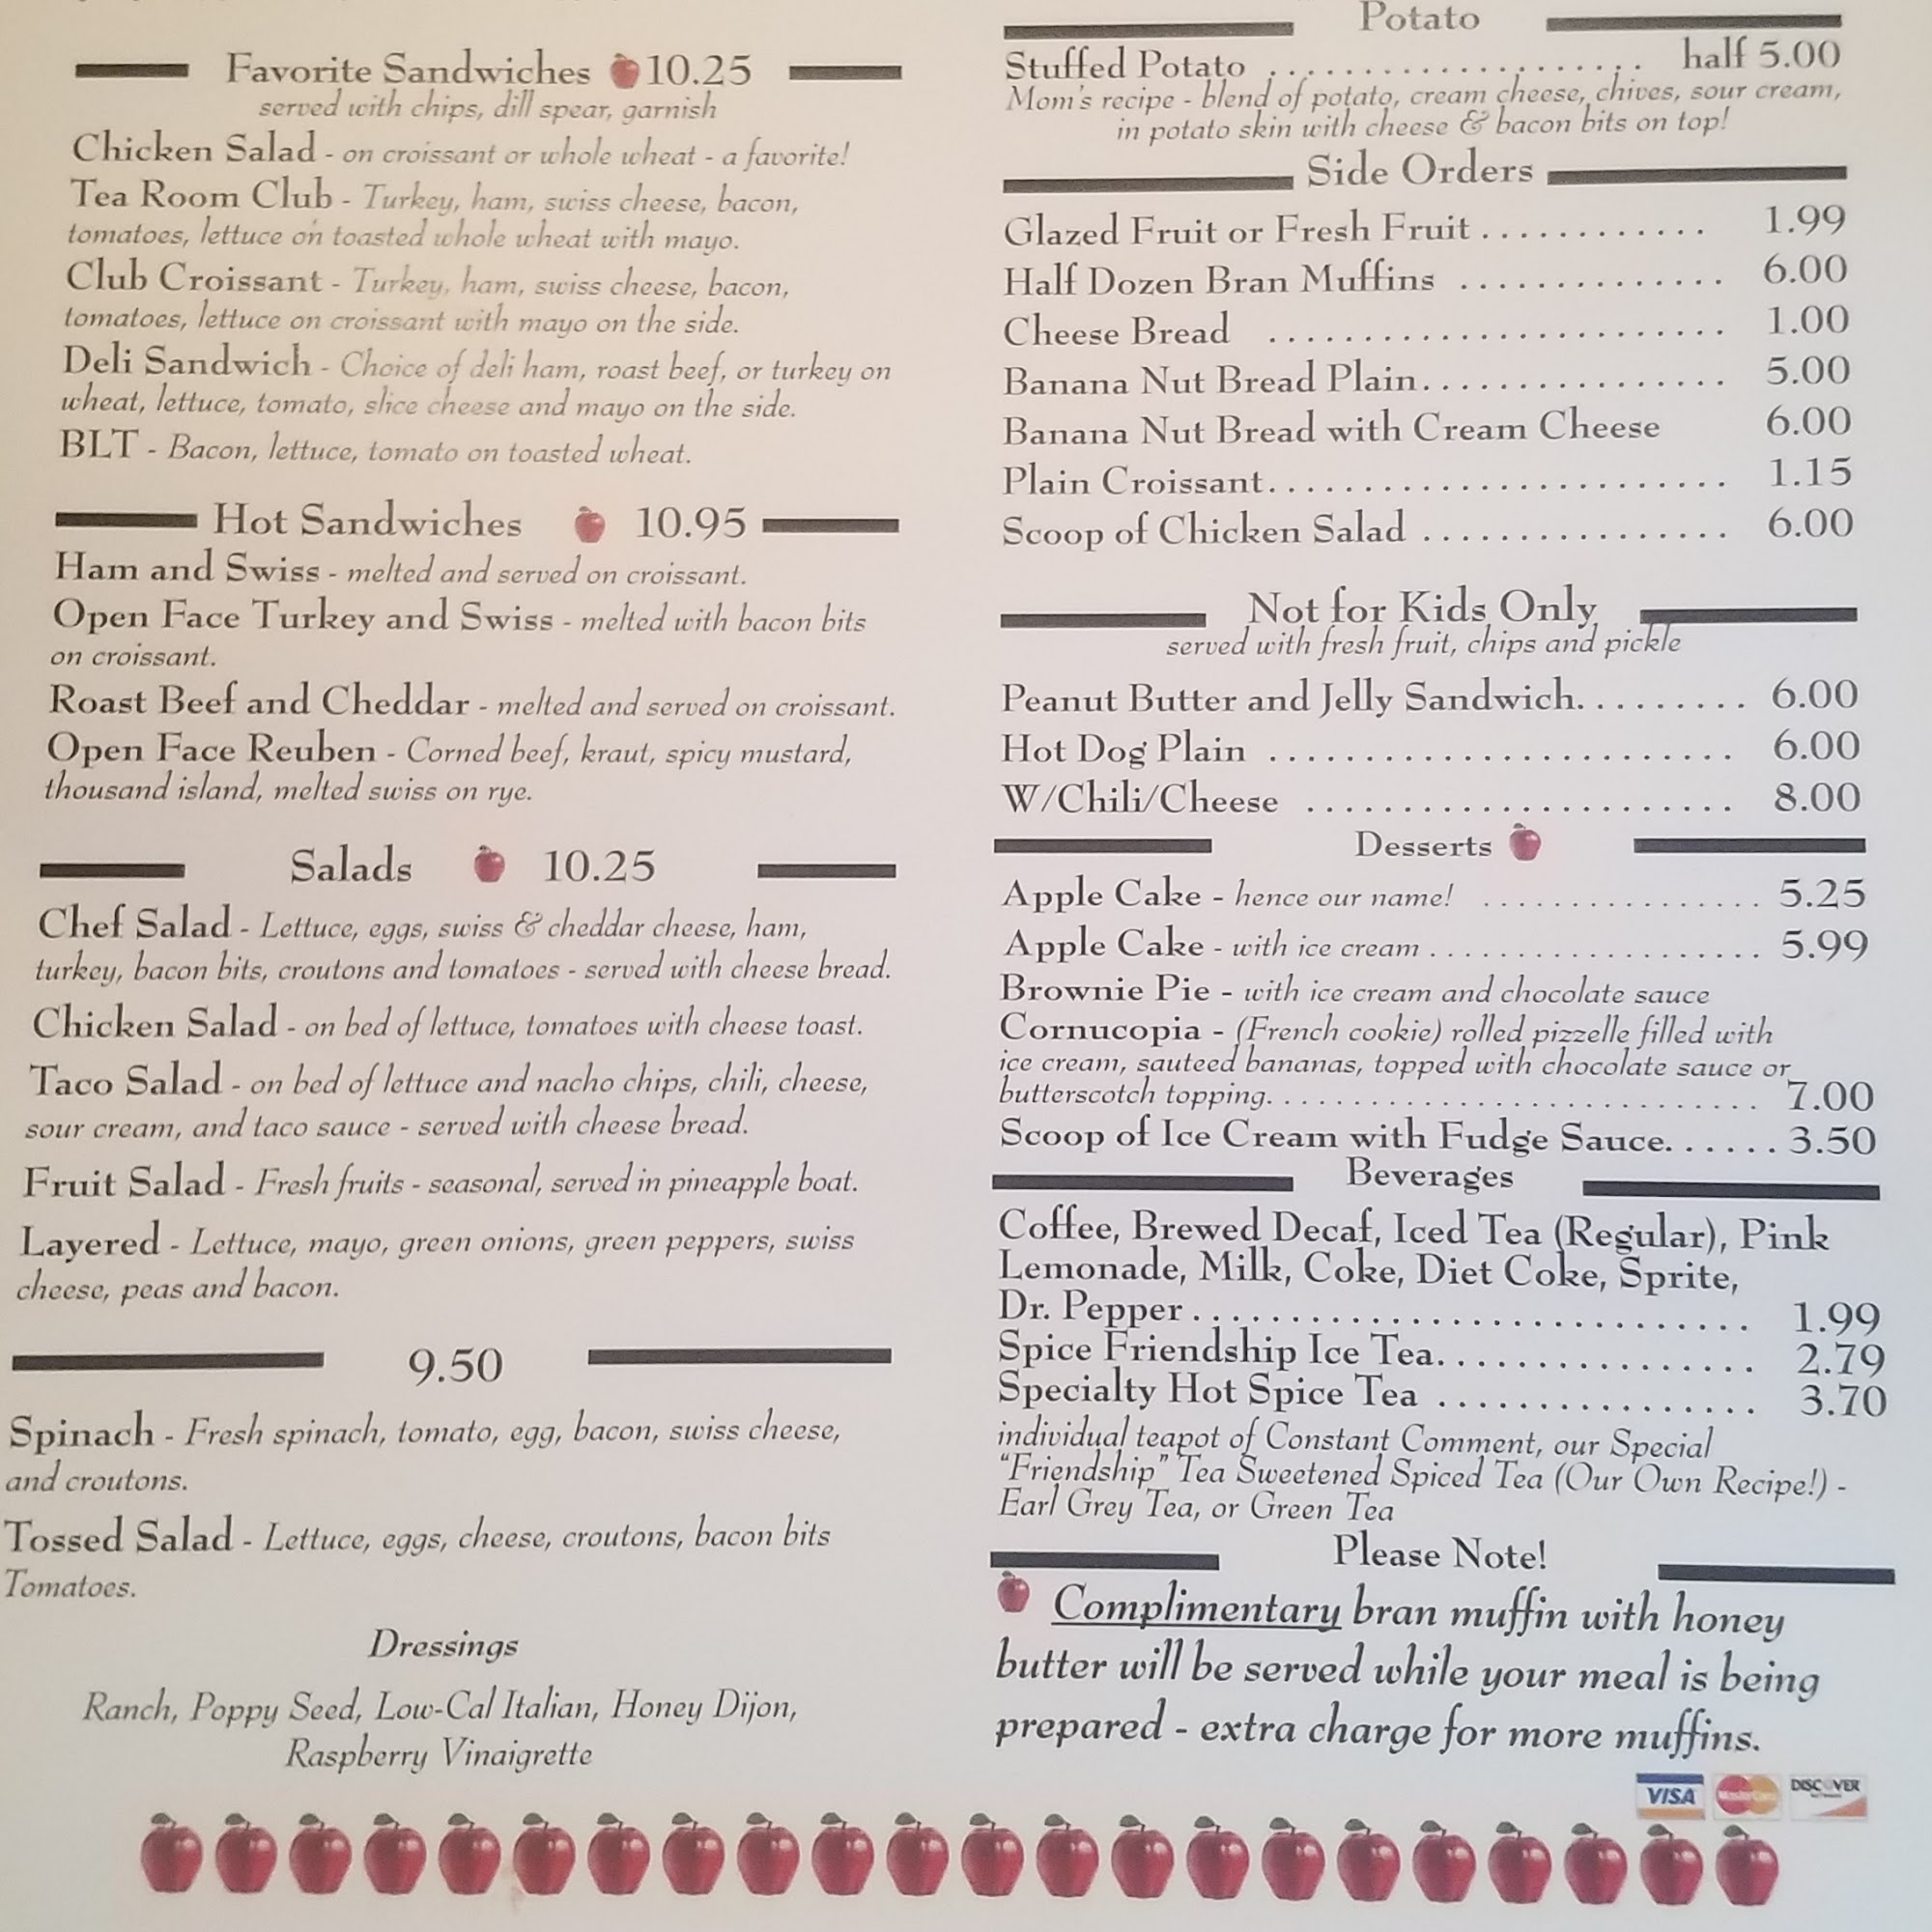 Favorite Sandwiches 10.25
served with chips, dill spear, garnish
Chicken Salad - on croissant or whole wheat - a favorite!
Tea Room Club - Turkey, ham, swiss cheese, bacon,
tomatoes, lettuce on toasted whole wheat with mayo.
Club Croissant - Turkey, ham, swiss cheese, bacon,
tomatoes, lettuce on croissant with mayo on the side.
Deli Sandwich - Choice of deli ham, roast beef, or turkey on
wheat, lettuce, tomato, slice cheese and mayo on the side.
BLT - Bacon, lettuce, tomato on toasted wheat.
Hot Sandwiches 10.95
Ham and Swiss - melted and served on croissant.
Open Face Turkey and Swiss - melted with bacon bits
on croissant.
Roast Beef and Cheddar - melted and served on croissant.
Open Face Reuben - Corned beef, kraut, spicy mustard,
thousand island, melted swiss on rye.
Salads 10.25
Chef Salad - Lettuce, eggs, swiss & cheddar cheese, ham,
turkey, bacon bits, croutons and tomatoes - served with cheese bread.
Chicken Salad - on bed of lettuce, tomatoes with cheese toast.
Taco Salad - on bed of lettuce and nacho chips, chili, cheese,
sour cream, and taco sauce - served with cheese bread.
Fruit Salad - Fresh fruits - seasonal, served in pineapple boat.
Layered - Lettuce, mayo, green onions, green peppers, swiss
cheese, peas and bacon.
9.50
Spinach - Fresh spinach, tomato, egg, bacon, swiss cheese,
and croutons.
Tossed Salad - Lettuce, eggs, cheese, croutons, bacon bits
Tomatoes.
Dressings
Ranch, Poppy Seed, Low-Cal Italian, Honey Dijon,
Raspberry Vinaigrette
Potato
Stuffed Potato . . . . . . . . . . . . . . . . . . . . half 5.00
Mom's recipe - blend of potato, cream cheese, chives, sour cream,
in potato skin with cheese & bacon bits on top!
Side Orders
Glazed Fruit or Fresh Fruit . . . . . . . . . . . . 1.99
Half Dozen Bran Muffins . . . . . . . . . . . . . . 6.00
Cheese Bread . . . . . . . . . . . . . . . . . . . . . . . . 1.00
Banana Nut Bread Plain. . . . . . . . . . . . . . . . 5.00
Banana Nut Bread with Cream Cheese 6.00
Plain Croissant. . . . . . . . . . . . . . . . . . . . . . . . 1.15
Scoop of Chicken Salad . . . . . . . . . . . . . . . . 6.00
Not for Kids Only
served with fresh fruit, chips and pickle
Peanut Butter and Jelly Sandwich. . . . . . . . . 6.00
Hot Dog Plain . . . . . . . . . . . . . . . . . . . . . . . . 6.00
W/Chili/Cheese . . . . . . . . . . . . . . . . . . . . . . 8.00
Desserts
Apple Cake - hence our name! . . . . . . . . . . . . . . . . 5.25
Apple Cake - with ice cream . . . . . . . . . . . . . . . . . . 5.99
Brownie Pie - with ice cream and chocolate sauce
Cornucopia - (French cookie) rolled pizzelle filled with
ice cream, sauteed bananas, topped with chocolate sauce or
butterscotch topping. . . . . . . . . . . . . . . . . . . . . . . . . . 7.00
Scoop of Ice Cream with Fudge Sauce. . . . . . 3.50
Beverages
Coffee, Brewed Decaf, Iced Tea (Regular), Pink
Lemonade, Milk, Coke, Diet Coke, Sprite,
Dr. Pepper . . . . . . . . . . . . . . . . . . . . . . . . . . . . 1.99
Spice Friendship Ice Tea. . . . . . . . . . . . . . . . 2.79
Specialty Hot Spice Tea . . . . . . . . . . . . . . . . 3.70
individual teapot of Constant Comment, our Special
"Friendship" Tea Sweetened Spiced Tea (Our Own Recipe!) -
Earl Grey Tea, or Green Tea
Please Note!
Complimentary bran muffin with honey
butter will be served while your meal is being
prepared - extra charge for more muffins.
VISA MasterCard DISCOVER